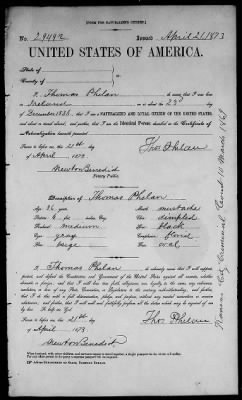 [FORM FOR NATURALIZED CITIZEN.]
No. 29492 Issued April 21, 1873
UNITED STATES OF AMERICA.
State of
County of
I, Thomas Phelan do swear that I was born
in Ireland on or about the 23d day
of December 1836; that I am a NATURALIZED AND LOYAL CITIZEN OF THE UNITED STATES,
and about to travel abroad; and further that I am the Identical Person described in the Certificate of
Naturalization herewith presented.
Sworn to before me, this 21st day
of April 1873.
Thos Phelan
Newton Benedict
Notary Public.
Description of Thomas Phelan
Age: 36 years
Mouth: mustache
Stature: 6 feet inches, Eng.
Chin: dimpled
Forehead: medium
Hair: black
Eyes: gray
Complexion: florid
Nose: large
Face: oval
I, Thomas Phelan do solemnly swear that I will support,
protect, and defend the Constitution and Government of the United States against all enemies, whether domestic
or foreign; and that I will bear true faith, allegiance, and loyalty to the same, any ordinance,
resolution, or law of any State, Convention, or Legislature to the contrary notwithstanding; and further,
that I do this with a full determination, pledge, and purpose, without any mental reservation or evasion
whatsoever; and further, that I will well and faithfully perform all the duties which may be required of me
by law: So help me God.
Sworn to before me, this 21st day
of April 1873.
Thos Phelan
Newton Benedict
Criminal Court 10 March 1868